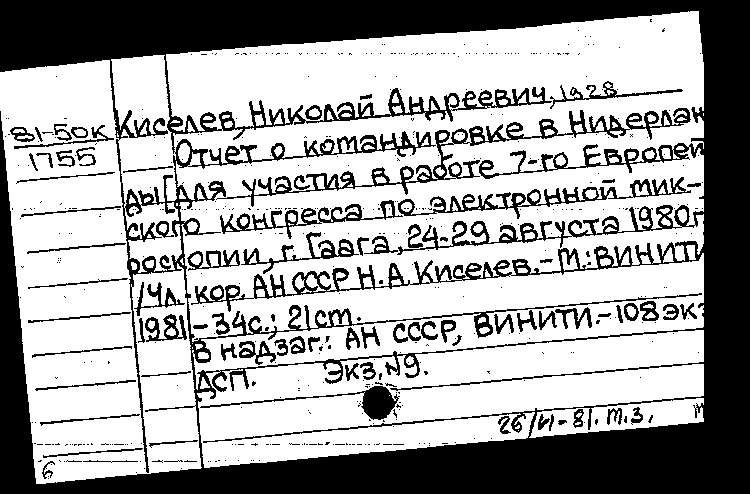 81-50к
1755
Киселев, Николай Андреевич, 1928
Отчет о командировке в Нидерлан
ды [для участия в работе 7-го Европей
ского конгресса по электронной мик-
роскопии, г. Гаага, 24-29 августа 1980г
/Чл.-кор. АН СССР Н.А. Киселев.- М.: ВИНИТИ
1981.- 34с.; 21cm.
В надзаг.: АН СССР, ВИНИТИ.- 108 экз
ДСП. Экз. №9.
26/VI-81. т.з.
6